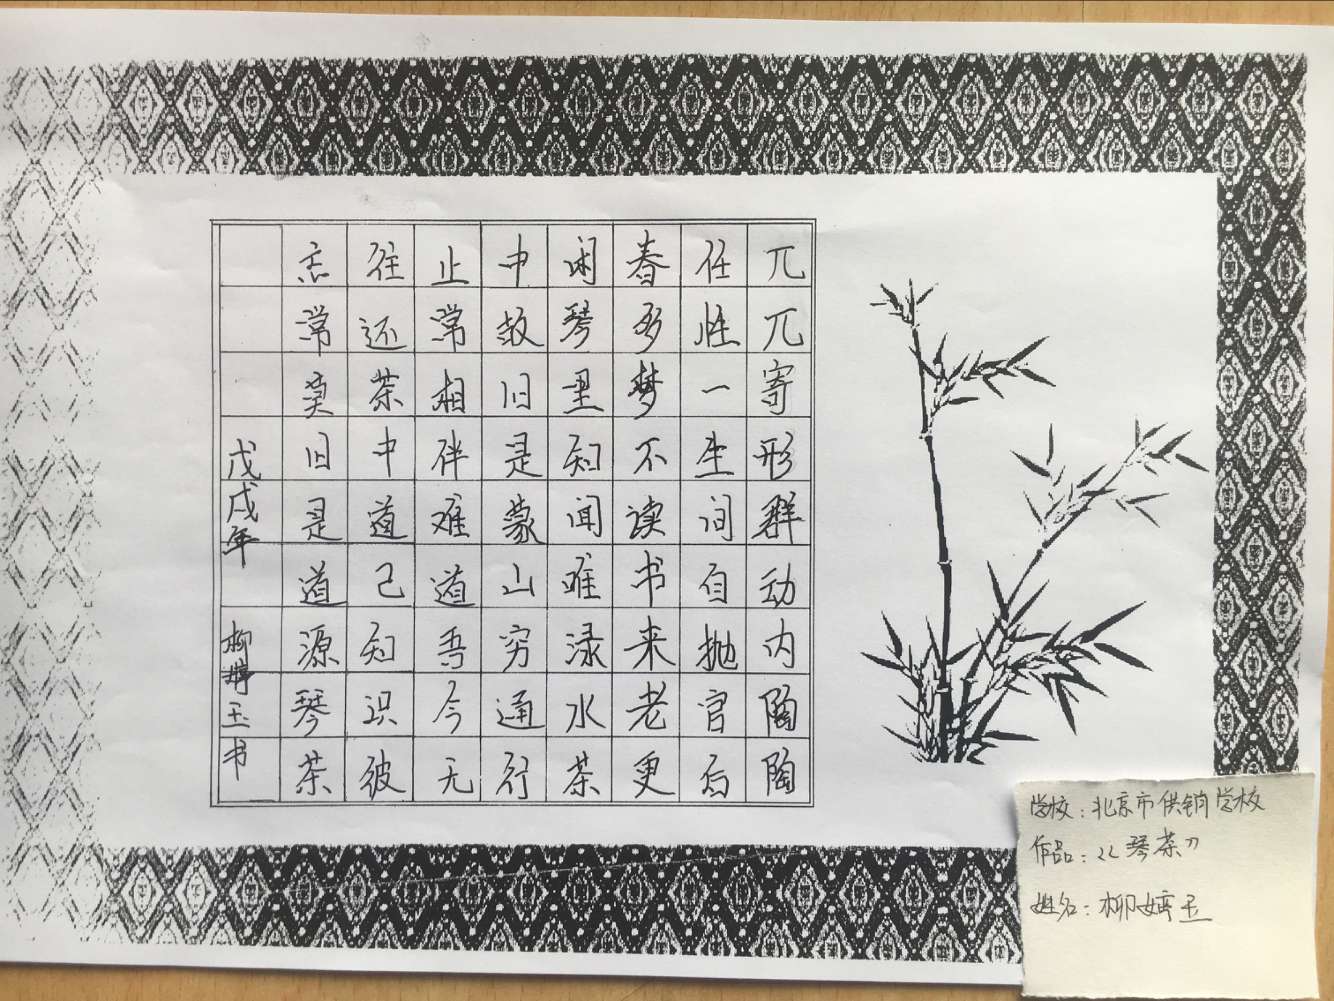 兀兀寄形群动内陶陶
任性一生间自抛官后
春多梦不读书来老更
闲琴里知闻唯渌水茶
中故旧是蒙山穷通行
止常相伴难道吾今无
往还茶中道己知识彼
常莫旧是道源琴茶
戊戌年 柳玉书
学校：北京市供销学校
作品：《琴茶》
姓名：柳玉